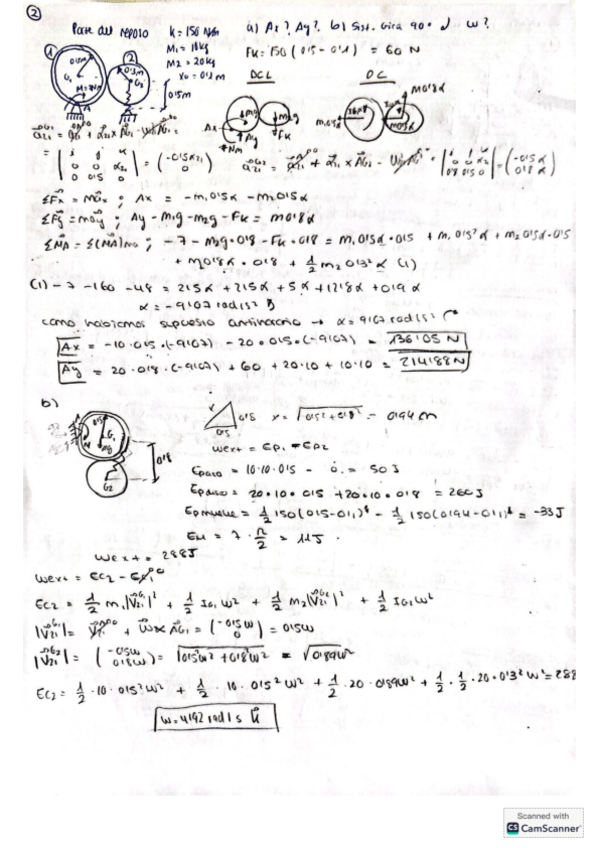 ②
Parte del reposo K = 150 N/m a) Ax? Ay? b) Sist. Gira 90° ↓ w?
M1 = 10kg FK = 150 (0'5 - 0'1) = 60 N
M2 = 20kg
x0 = 0'1m DCL DC
① ② 0'5m 0'3m G1 G2 0'5m
Ax Ay m1g m2g FK 7Nm
ΣFx = max ; Ax = -m1 0'5α - m2 0'5α
ΣFy = may ; Ay - m1g - m2g - FK = m 0'8α
ΣMA = Σ(MA)ma ; -7 - m2g·0'8 - FK·0'8 = m1 0'5α·0'5 + m1 0'5²α + m2 0'5α·0'5
+ m 0'8α·0'8 + 1/2 m2 0'3²α (1)
(1) -7 -160 -48 = 2'5α + 2'5α + 5α + 12'8α + 0'9α
α = -9'07 rad/s²
como habíamos supuesto antihorario → α = 9'07 rad/s²
Ax = -10·0'5·(-9'07) - 20·0'5·(-9'07) = 136'05 N
Ay = 20·0'8·(-9'07) + 60 + 20·10 + 10·10 = 214'88 N
b)
0'5 0'5 x = √0'5²+0'8² = 0'94 m
G1 G2 0'8
Wext = EP1 - EP2
EPaso = 10·10·0'5 - 0 = 50 J
EPdisco = 20·10·0'5 + 20·10·0'8 = 260 J
EPmuelle = 1/2 150 (0'5-0'1)² - 1/2 150 (0'94-0'1)² = -33 J
EM = 7·π/2 = 11 J.
Wext = 288J
Wext = EC2 - EC1
EC2 = 1/2 m1|VG1|² + 1/2 IG1 w² + 1/2 m2|VG2|² + 1/2 IG2 w²
= (-0'5w 0) = 0'5w
= (-0'5w 0'8w) = √0'5²w² + 0'8²w² = √0'89w²
EC2 = 1/2 · 10 · 0'5² w² + 1/2 · 10 · 0'5² w² + 1/2 · 20 · 0'89w² + 1/2 · 1/2 · 20 · 0'3² w² = 288
w = 4'92 rad/s
Scanned with
CS CamScanner